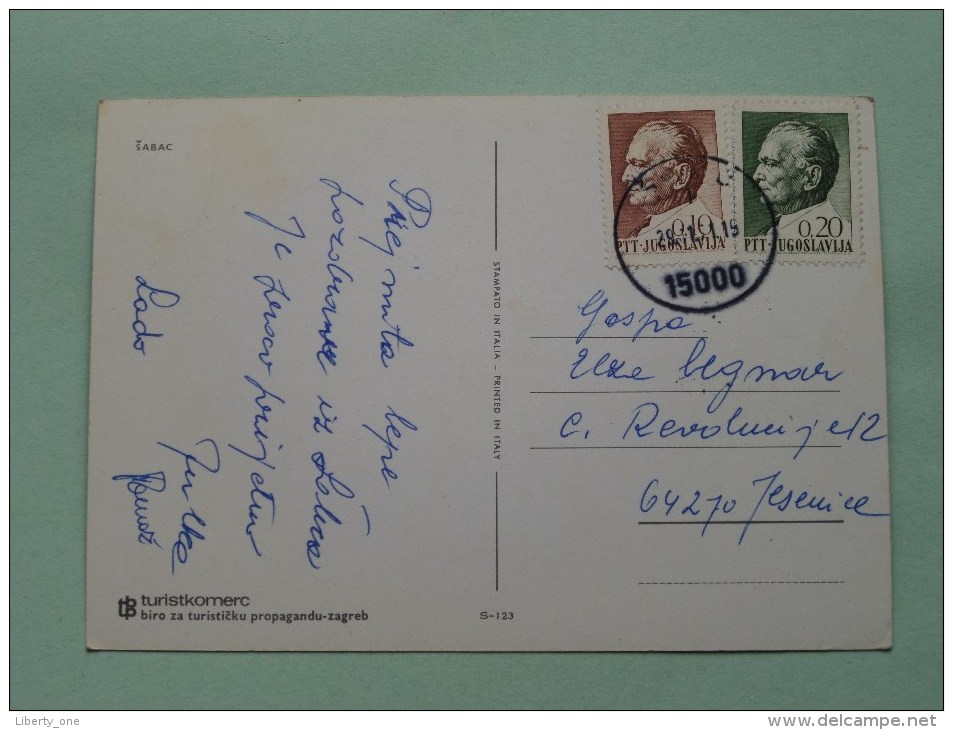 ŠABAC
Prejmita lepe
pozdrave iz Šabca
Je zelo prijetno
Lado
Julka
STAMPATO IN ITALIA - PRINTED IN ITALY
0.10
PTT-JUGOSLAVIJA
0.20
PTT-JUGOSLAVIJA
15000
Gospa
C. Revolucije 12
64270 Jesenice
turistkomerc
biro za turističku propagandu-zagreb
S-123
Liberty_one
http://www.delcampe.net